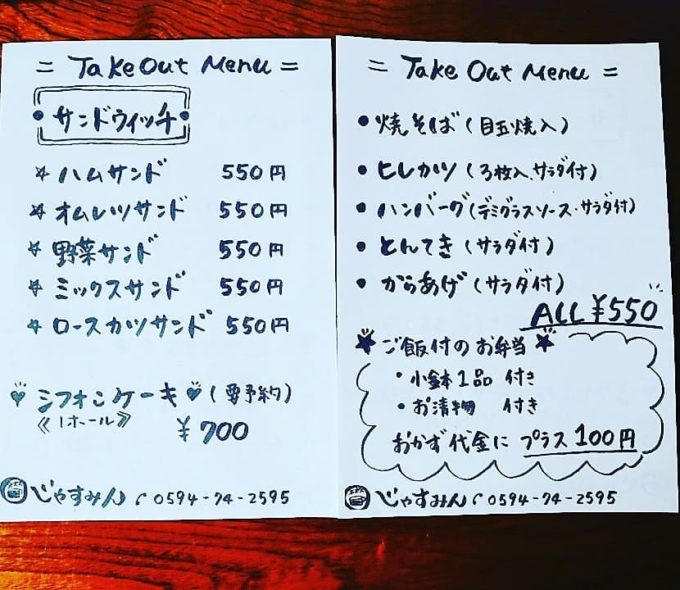 = Take Out Menu =
• サンドウィッチ •
☆ ハムサンド 550円
☆ オムレツサンド 550円
☆ 野菜サンド 550円
☆ ミックスサンド 550円
☆ ロースカツサンド 550円
♥ シフォンケーキ ♥ (要予約)
《1ホール》 ¥700
じゃすみん ☎ 0594-74-2595
= Take Out Menu =
• 焼そば (目玉焼入)
• ヒレカツ (3枚入、サラダ付)
• ハンバーグ (デミグラスソース・サラダ付)
• とんてき (サラダ付)
• からあげ (サラダ付)
ALL ¥550
★ ご飯付のお弁当 ★
・小鉢1品 付き
・お漬物 付き
おかず代金に プラス100円
じゃすみん ☎ 0594-74-2595